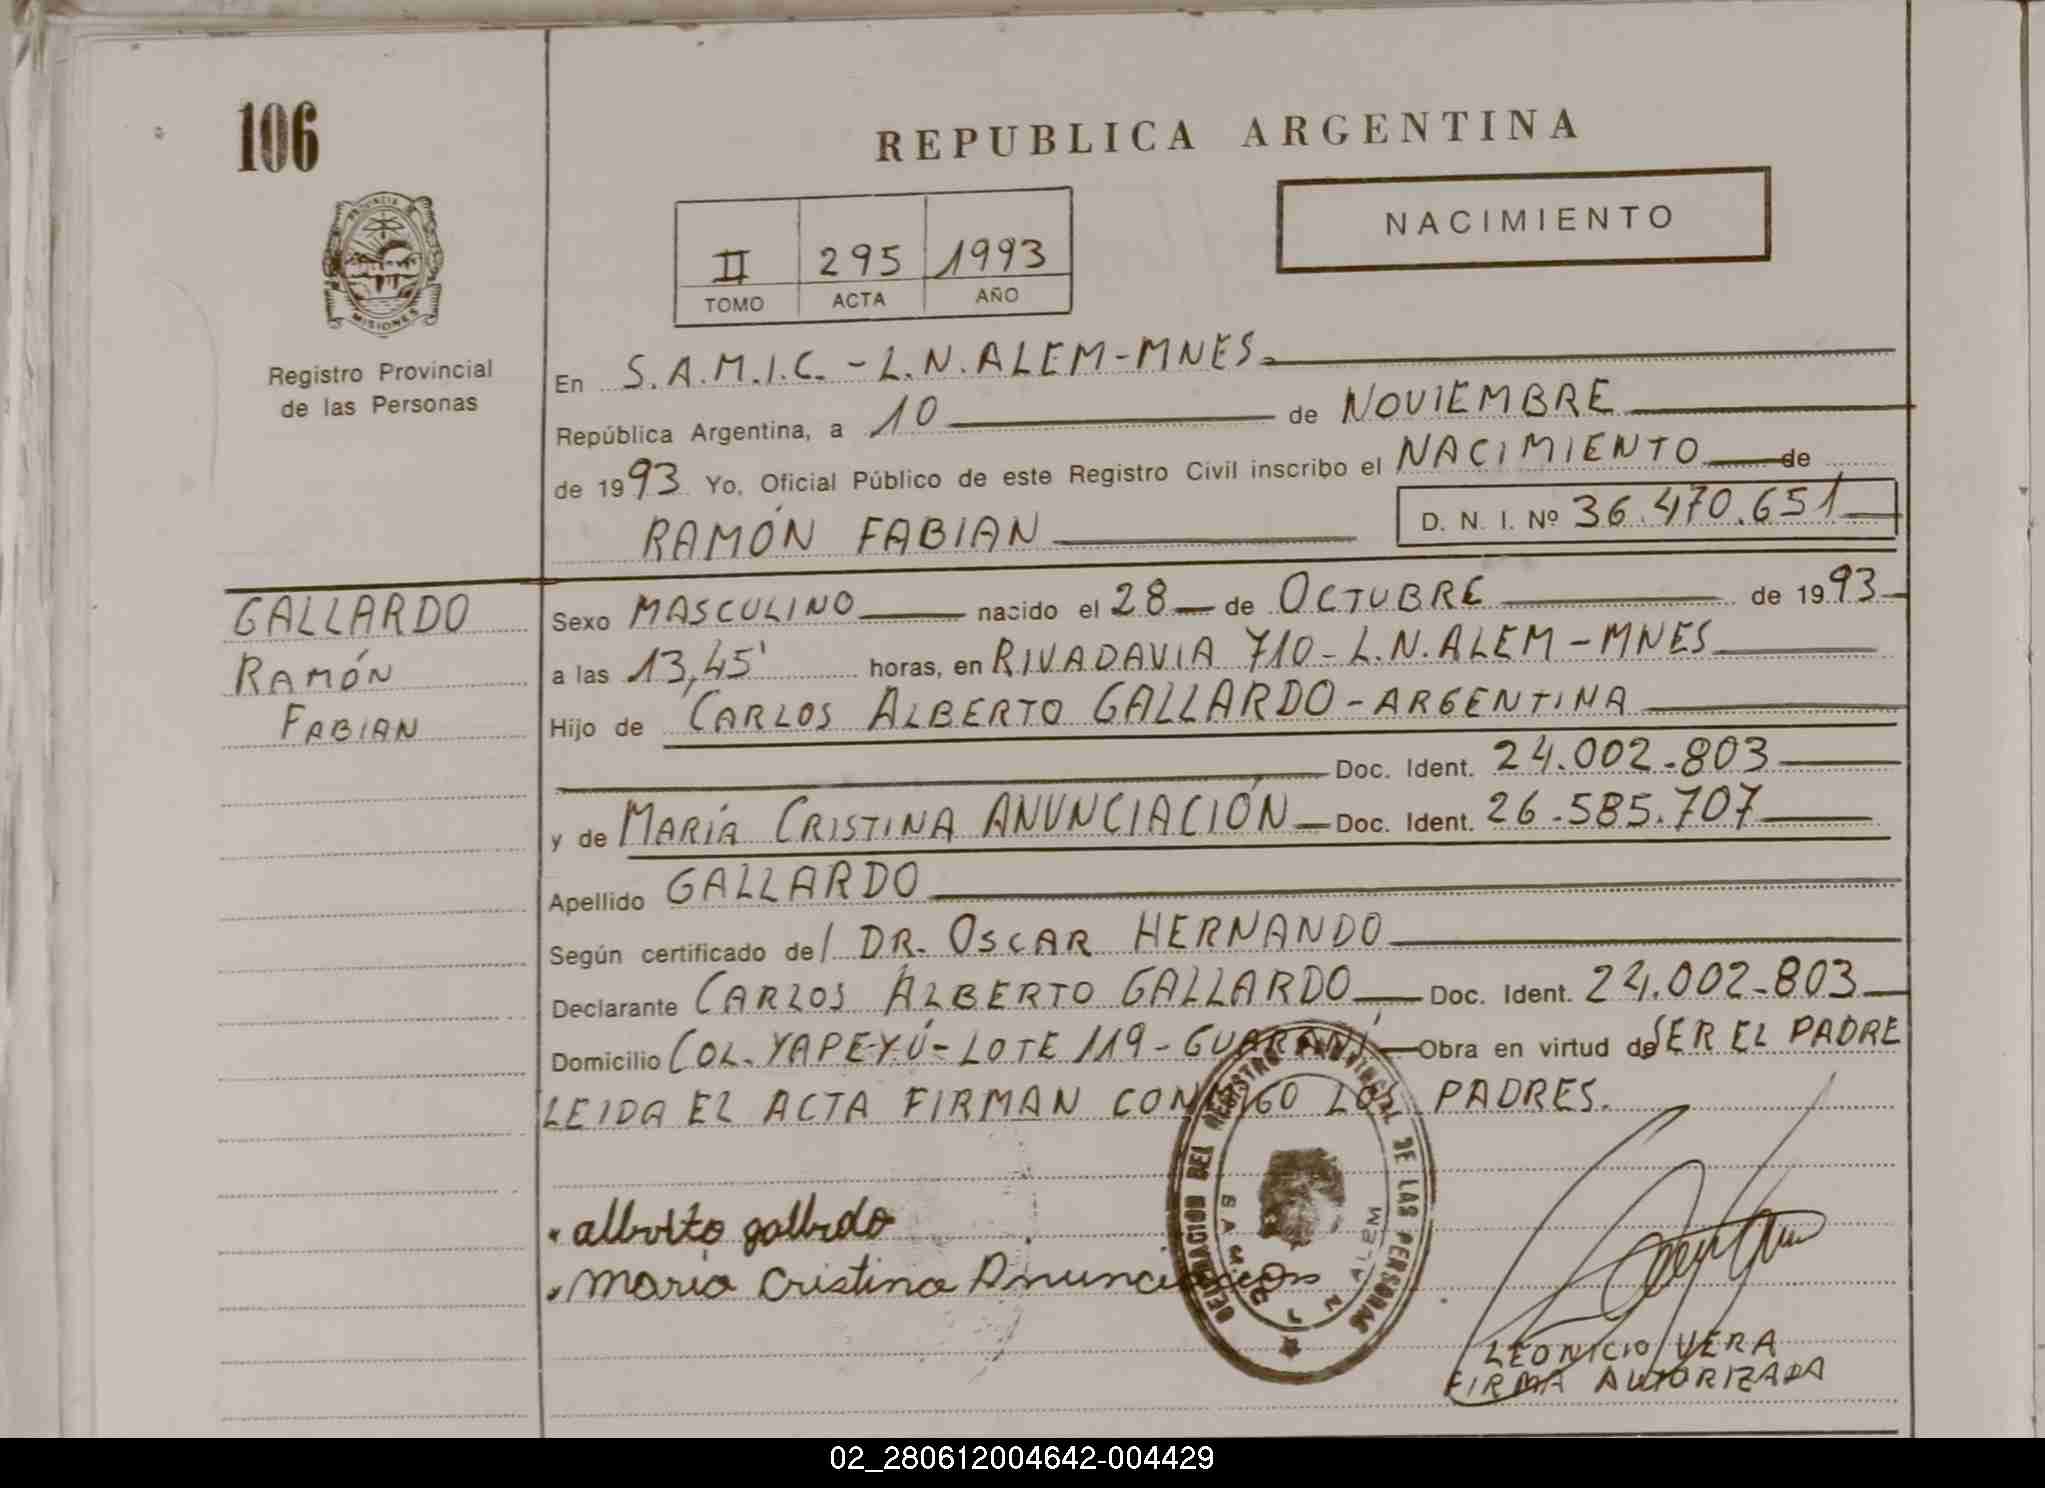 106
REPUBLICA ARGENTINA
NACIMIENTO
II 295 1993
TOMO ACTA AÑO
PROVINCIA DE MISIONES
Registro Provincial
de las Personas
En S.A.M.I.C. - L.N. ALEM - MNES
República Argentina, a 10 de NOVIEMBRE
de 1993 Yo, Oficial Público de este Registro Civil inscribo el NACIMIENTO de
RAMÓN FABIAN D. N. I. Nº 36.470.651
GALLARDO
RAMÓN
FABIAN
Sexo MASCULINO nacido el 28 de OCTUBRE de 1993
a las 13,45' horas, en RIVADAVIA 710 - L.N. ALEM - MNES
Hijo de CARLOS ALBERTO GALLARDO - ARGENTINA
Doc. Ident. 24.002.803
y de MARÍA CRISTINA ANUNCIACIÓN Doc. Ident. 26.585.707
Apellido GALLARDO
Según certificado de/ DR. OSCAR HERNANDO
Declarante CARLOS ALBERTO GALLARDO Doc. Ident. 24.002.803
Domicilio COL. YAPEYÚ - LOTE 119 - GUARANÍ Obra en virtud de SER EL PADRE
LEIDA EL ACTA FIRMAN CONMIGO LOS PADRES.
DELEGACION DEL REGISTRO PROVINCIAL DE LAS PERSONAS
L. N. ALEM
alberto gallardo
maria Cristina Anunciacion
LEONICIO VERA
FIRMA AUTORIZADA
02_280612004642-004429